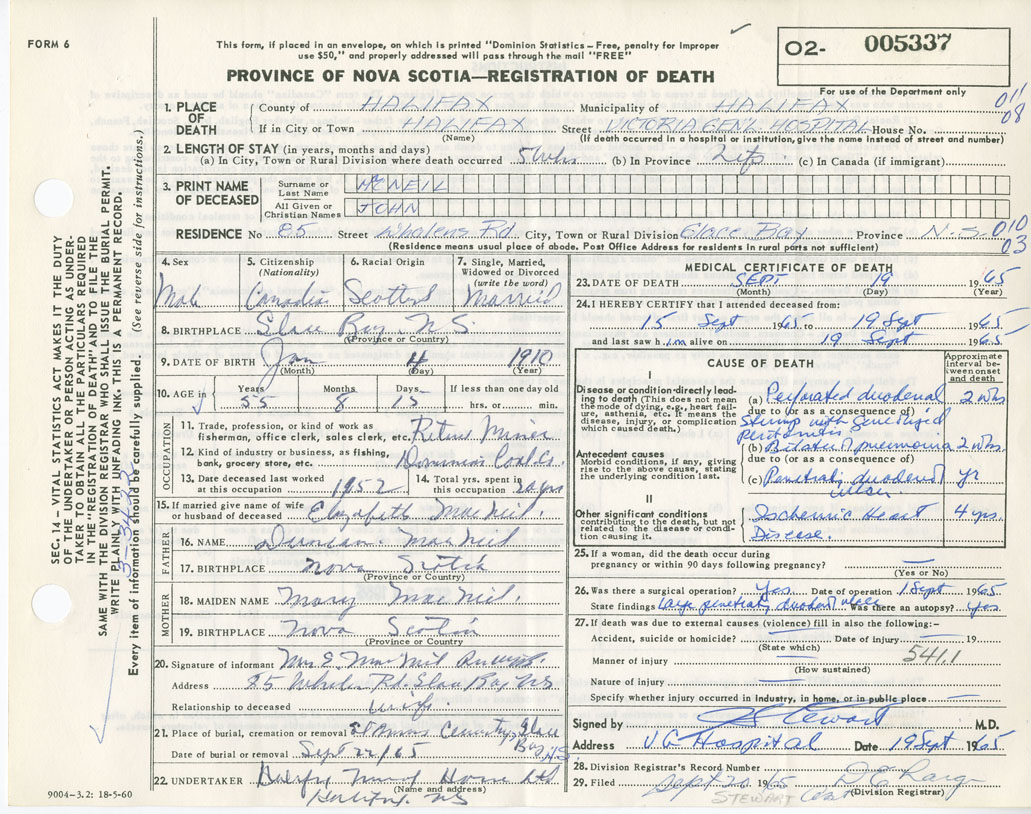 FORM 6
This form, if placed in an envelope, on which is printed "Dominion Statistics – Free, penalty for improper
use $50," and properly addressed will pass through the mail "FREE"
PROVINCE OF NOVA SCOTIA—REGISTRATION OF DEATH
O2- 005337
For use of the Department only
011
08
1. PLACE OF DEATH County of HALIFAX Municipality of HALIFAX
If in City or Town HALIFAX Street VICTORIA GEN'L HOSPITAL House No.
(Name) (If death occurred in a hospital or institution, give the name instead of street and number)
2. LENGTH OF STAY (in years, months and days)
(a) In City, Town or Rural Division where death occurred 5 wks (b) In Province Life (c) In Canada (if immigrant)
3. PRINT NAME OF DECEASED Surname or Last Name McNEIL
All Given or Christian Names JOHN
RESIDENCE No 85 Street Whalens Rd. City, Town or Rural Division Glace Bay Province N.S. 010
03
(Residence means usual place of abode. Post Office Address for residents in rural parts not sufficient)
4. Sex 5. Citizenship (Nationality) 6. Racial Origin 7. Single, Married, Widowed or Divorced (write the word)
Male Canadian Scottish Married
8. BIRTHPLACE Glace Bay N.S.
(Province or Country)
9. DATE OF BIRTH Jan 4 1910
(Month) (Day) (Year)
10. AGE in Years Months Days If less than one day old
55 8 15 hrs. or min.
OCCUPATION
11. Trade, profession or kind of work as fisherman, office clerk, sales clerk, etc. Retired Miner
12. Kind of industry or business, as fishing, bank, grocery store, etc. Dominion Coal Co.
13. Date deceased last worked at this occupation 1952 14. Total yrs. spent in this occupation 20 yrs
15. If married give name of wife or husband of deceased Elizabeth MacNeil.
FATHER
16. NAME Duncan MacNeil
17. BIRTHPLACE Nova Scotia
(Province or Country)
MOTHER
18. MAIDEN NAME Mary MacNeil.
19. BIRTHPLACE Nova Scotia
(Province or Country)
20. Signature of informant Mrs E. MacNeil
Address 85 Whalen Rd. Glace Bay NS
Relationship to deceased wife
21. Place of burial, cremation or removal Glace Bay, N.S.
Date of burial or removal Sept 22/65
22. UNDERTAKER Home Ltd
(Name and address)
Halifax NS
9004-3.2: 18-5-60
SEC. 14 —VITAL STATISTICS ACT MAKES IT THE DUTY
OF THE UNDERTAKER OR PERSON ACTING AS UNDER-
TAKER TO OBTAIN ALL THE PARTICULARS REQUIRED
IN THE "REGISTRATION OF DEATH" AND TO FILE THE
SAME WITH THE DIVISION REGISTRAR WHO SHALL ISSUE THE BURIAL PERMIT.
WRITE PLAINLY WITH UNFADING INK. THIS IS A PERMANENT RECORD.
Every item of information should be carefully supplied. (See reverse side for instructions.)
MEDICAL CERTIFICATE OF DEATH
23. DATE OF DEATH SEPT 19 1965
(Month) (Day) (Year)
24. I HEREBY CERTIFY that I attended deceased from:
15 Sept 1965 to 19 Sept 1965
and last saw him alive on 19 Sept 1965
CAUSE OF DEATH
Approximate interval between onset and death
I
Disease or condition directly leading to death (This does not mean the mode of dying, e.g., heart failure, asthenia, etc. It means the disease, injury, or complication which caused death.)
(a) Perforated duodenal 2 wks
due to (or as a consequence of)
Stump with generalized
peritonitis
Antecedent causes
Morbid conditions, if any, giving rise to the above cause, stating the underlying condition last.
(b) Bilateral pneumonia 2 wks
due to (or as a consequence of)
(c) Penetrating duodenal yr
ulcer.
II
Other significant conditions
contributing to the death, but not related to the disease or condition causing it.
Ischemic Heart 4 yrs.
Disease.
25. If a woman, did the death occur during pregnancy or within 90 days following pregnancy?
(Yes or No)
26. Was there a surgical operation? Yes. Date of operation 1 Sept 1965
State findings Large penetrating duodenal ulcer Was there an autopsy? Yes
27. If death was due to external causes (violence) fill in also the following:-
Accident, suicide or homicide? Date of injury 19
(State which)
Manner of injury 541.1
(How sustained)
Nature of injury
Specify whether injury occurred in industry, in home, or in public place
Signed by Stewart M.D.
Address V.G. Hospital Date 19 Sept 1965
28. Division Registrar's Record Number
29. Filed Sept 20 1965
(Division Registrar)
STEWART